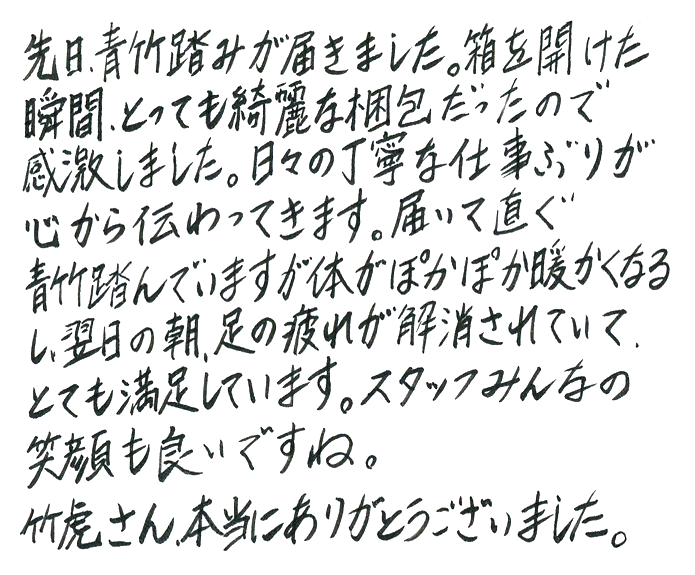 先日、青竹踏みが届きました。箱を開けた
瞬間、とっても綺麗な梱包だったので
感激しました。日々の丁寧な仕事ぶりが
心から伝わってきます。届いて直ぐ
青竹踏んでいますが体がぽかぽか暖かくなる
し、翌日の朝、足の疲れが解消されていて、
とても満足しています。スタッフみんなの
笑顔も良いですね。
竹虎さん、本当にありがとうございました。